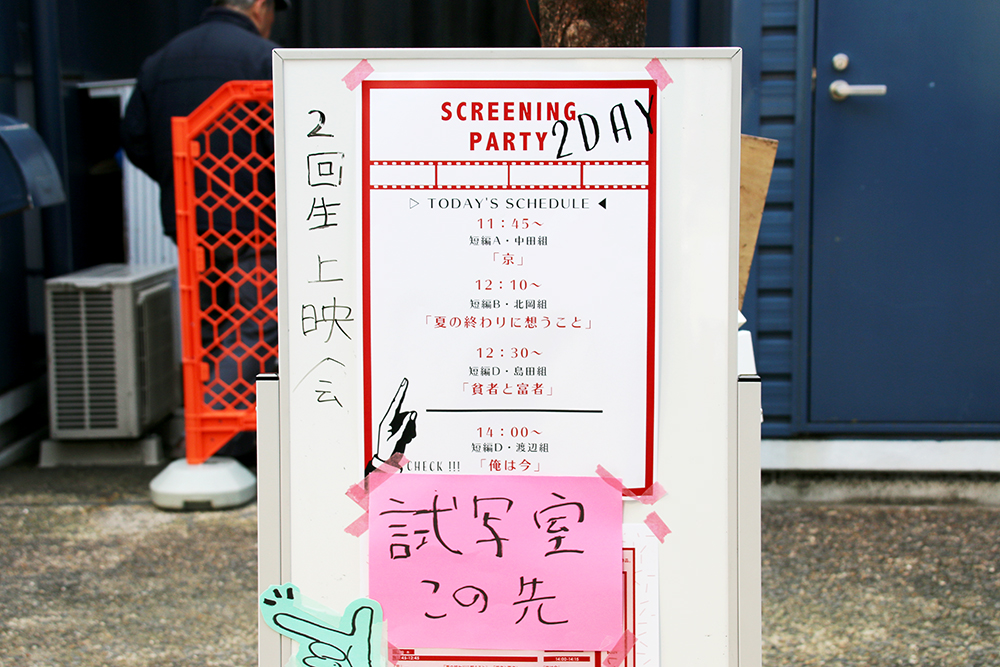 2回生上映会
SCREENING
PARTY
2DAY
▷ TODAY'S SCHEDULE ◀
11：45～
短編A・中田組
「京」
12：10～
短編B・北岡組
「夏の終わりに想うこと」
12：30～
短編D・島田組
「貧者と富者」
14：00～
短編D・渡辺組
CHECK !!!
「俺は今」
試写室
この先